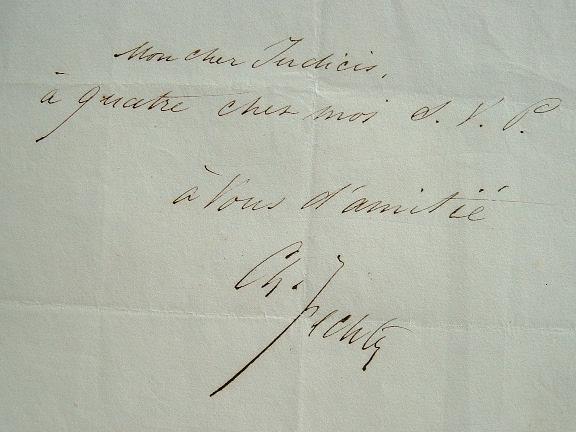 Mon cher Judicis,
à quatre chez moi S. V. P.
à Vous d'amitié
Ch. Fechter